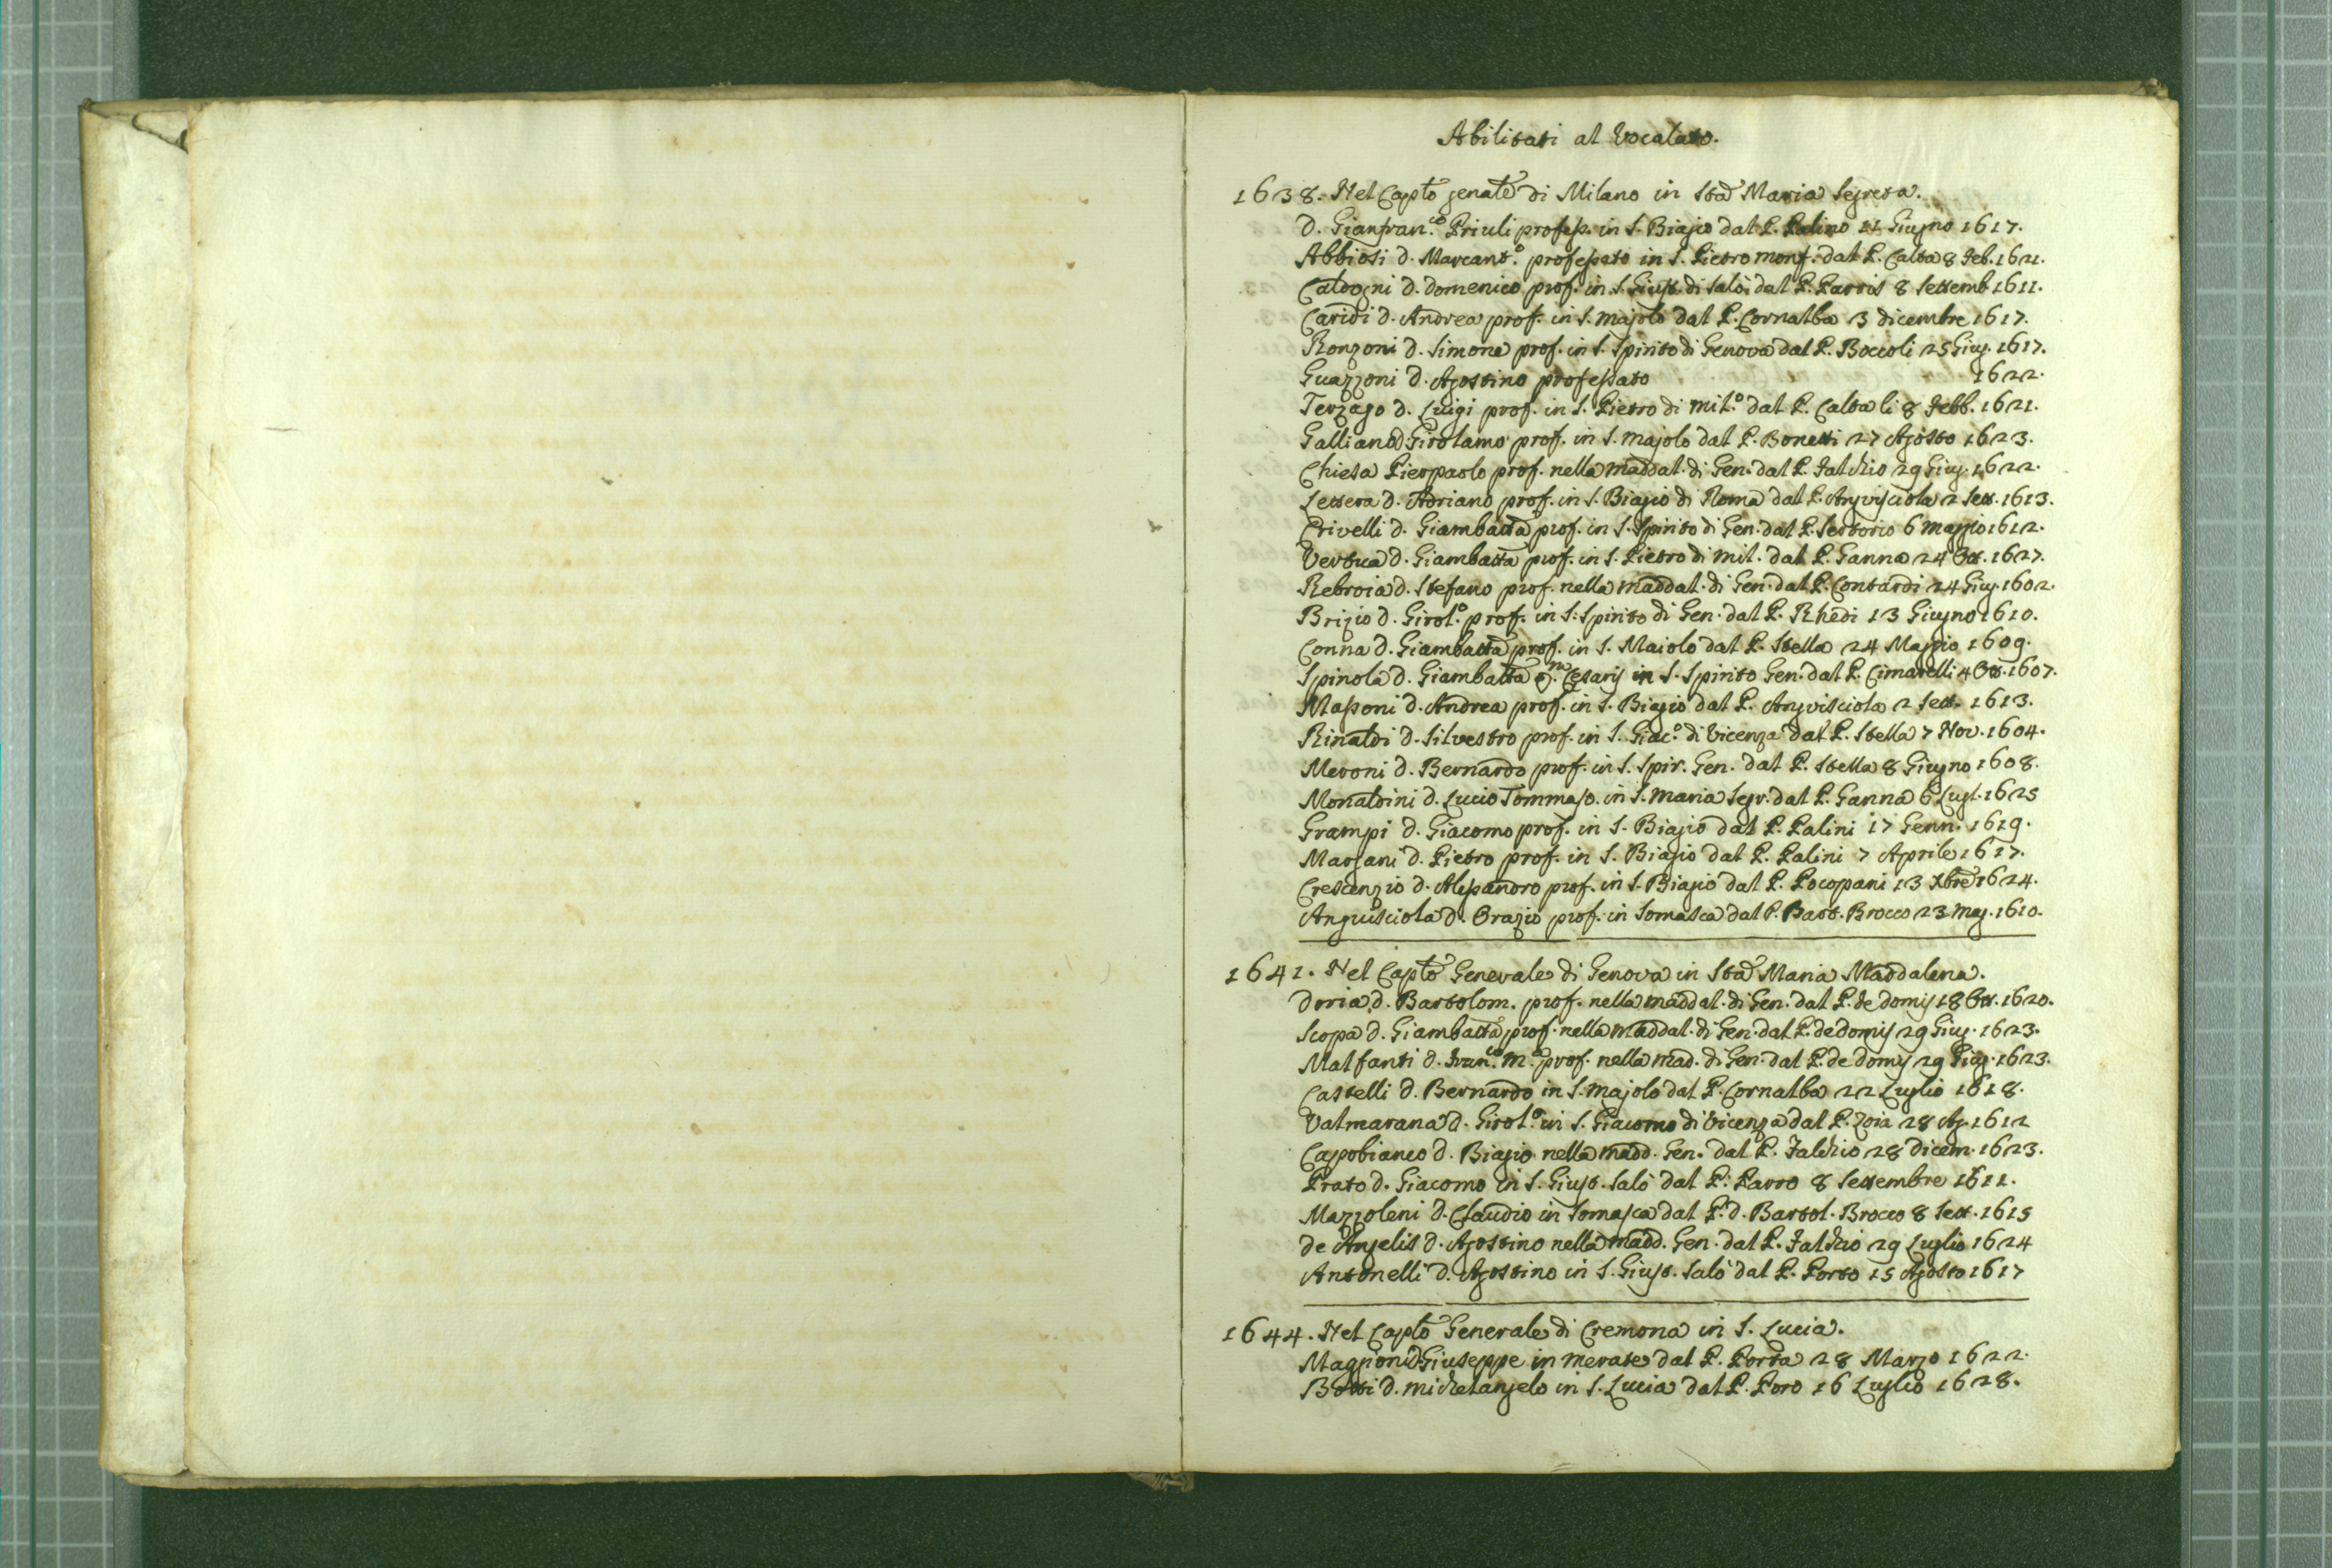 Abilitati al Vocalato.
1638. Nel Caplo genale di Milano in Sta Maria Segreta.
D. Gianfran.co Priuli profess. in S. Biagio dal P. Palino 11 Giugno 1617.
Abbiosi D. Marcant.o professato in S. Pietro monf. dal P. Calta 8 Feb. 1621.
Caldogni D. Domenico prof. in S. Giust. di Salò dal P. Parris 8 Settemb. 1611.
Caridi D. Andrea prof. in S. Majolo dal P. Cornalba 3 dicembre 1617.
Ronzoni D. Simone prof. in S. Spirito di Genova dal P. Boccoli 25 Giug. 1617.
Guazzoni D. Agostino professato 1622.
Terzago D. Luigi prof. in S. Pietro di Mil.o dal P. Calta li 8 Febb. 1621.
Galliano D Girolamo prof. in S. Majolo dal P. Bonetti 27 Agosto 1623.
Chiesa Pierpaolo prof. nella Maddal. di Gen. dal P. Falchio 29 Giug. 1622.
Lettera D. Adriano prof. in S. Biagio di Roma dal P. Angvisciola 2 Sett. 1613.
Crivelli D. Giambatta prof. in S. Spirito di Gen. dal P. Sertorio 6 Maggio 1612.
Vertua D. Giambatta prof. in S. Pietro di Mil. dal P. Ganna 24 Ott. 1627.
Rebroia D. Stefano prof. nella Maddal. di Gen. dal P. Contardi 24 Giug. 1602.
Brizio D. Girol.o prof. in S. Spirito di Gen. dal P. Rhedi 13 Giugno 1610.
Conna D. Giambatta prof. in S. Maiolo dal P. Stella 24 Maggio 1609.
Spinola D. Giambatta Cesaris in S. Spirito Gen. dal P. Cimarelli 4 Ott. 1607.
Massoni D. Andrea prof. in S. Biagio dal P. Angvisciola 2 Sett. 1613.
Rinaldi D. Silvestro prof. in S. Giac.o di Vicenza dal P. Stella 7 Nov. 1604.
Meroni D. Bernardo prof. in S. Spir. Gen. dal P. Stella 8 Giugno 1608.
Monaldini D. Lucio Tommaso. in S. Maria Segr. dal P. Ganna 6 Lugl. 1625
Grampi D. Giacomo prof. in S. Biagio dal P. Palini 17 Genn. 1619.
Marsani D. Pietro prof. in S. Biagio dal P. Palini 7 Aprile 1617.
Crescenzio D. Alessandro prof. in S. Biagio dal P. Pocopani 13 Xbre 1624.
Anguisciola D. Orazio prof. in Somasca dal P. Bart. Brocco 23 Mag. 1610.
1641. Nel Caplo Generale di Genova in Sta Maria Maddalena.
Doria D. Bartolom. prof. nella Maddal. di Gen. dal P. de Domis 18 Ott. 1620.
Scopa D. Giambatta prof. nella Maddal. di Gen. dal P. de Domis 29 Giug. 1623.
Malfanti D. Fran.co M.a prof. nella Mad. di Gen. dal P. de Domis 29 Giug. 1623.
Castelli D. Bernardo in S. Majolo dal P. Cornalba 22 Luglio 1618.
Valmarana D. Girol.o in S. Giacomo di Vicenza dal P. Zoia 28 Ag. 1612
Capobianco D. Biagio nella Madd. Gen. dal P. Falchio 28 Dicem. 1623.
Prato D. Giacomo in S. Giust. Salò dal P. Parro 8 Settembre 1611.
Mazzoleni D. Claudio in Somasca dal P. D. Bartol. Brocco 8 Sett. 1615
de Angelis D. Agostino nella Madd. Gen. dal P. Falchio 29 Luglio 1624
Antonelli D. Agostino in S. Giust. Salò dal P. Porto 15 Agosto 1617
1644. Nel Caplo Generale di Cremona in S. Lucia.
Maggioni D Giuseppe in Merate dal P. Porta 28 Marzo 1622.
Botti D. Michelangelo in S. Lucia dal P. Poro 16 Luglio 1628.